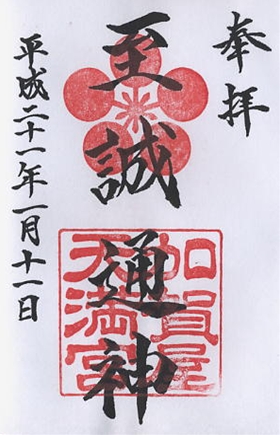 奉拝
至誠通神
加賀屋
天満宮
平成二十一年一月十一日